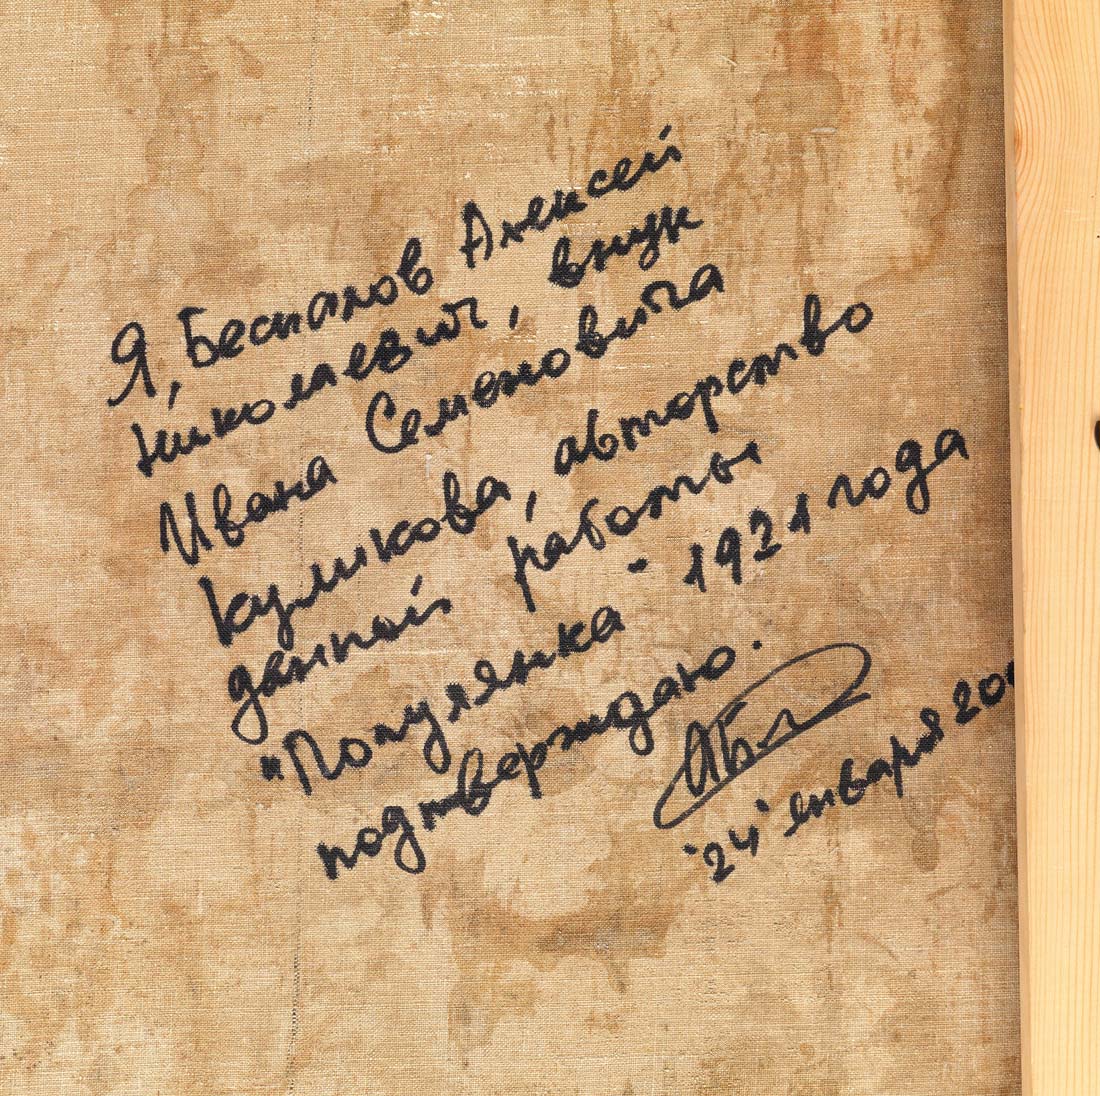 Я, Беспалов Алексей
Николаевич, внук
Ивана Семеновича
Куликова, авторство
данной работы
"Полулянка" 1921 года
подтверждаю.
"24" января 20